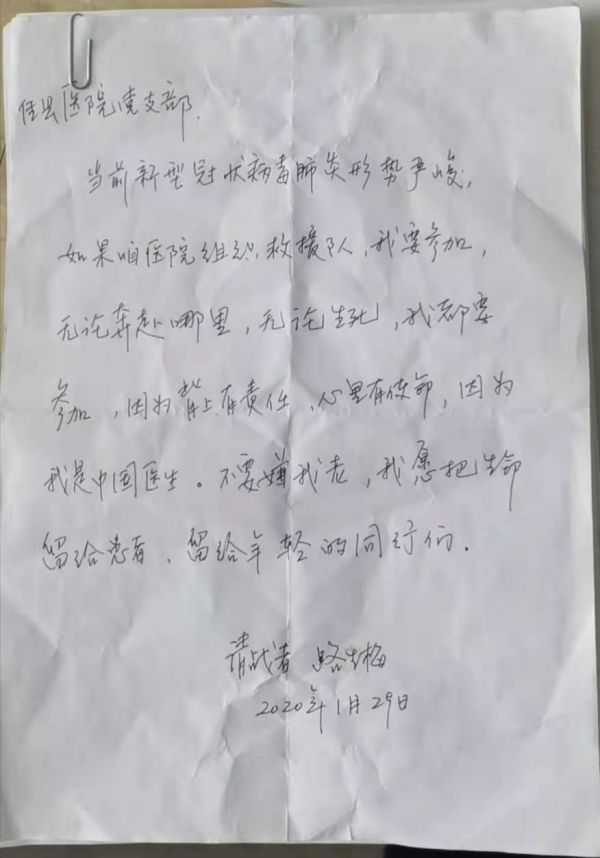 佳县医院党支部，
当前新型冠状病毒肺炎形势严峻，
如果咱医院组织救援队，我要参加，
无论奔赴哪里，无论生死，我都要
参加，因为背上有责任，心里有使命，因为
我是中国医生。不要嫌我老，我愿把生命
留给患者、留给年轻的同行们。
请战者 路生梅
2020年1月29日